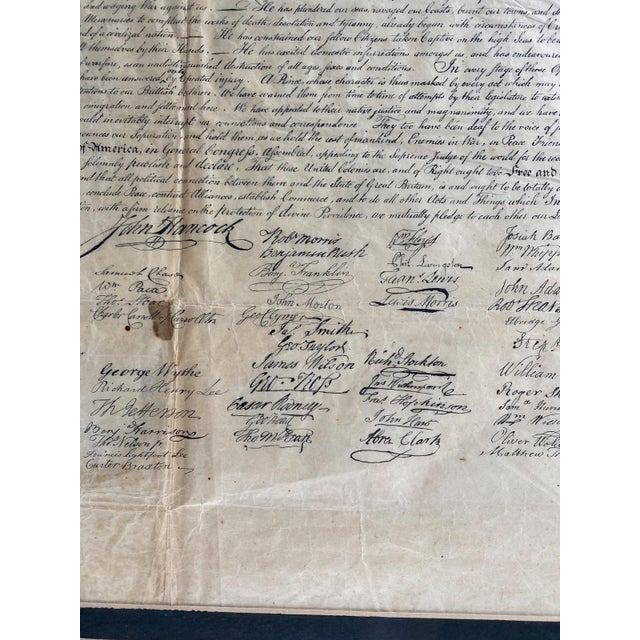 and waging War against us. — He has plundered our seas, ravaged our Coasts, burnt our towns, and des
Mercenaries to compleat the works of death, desolation and tyranny, already begun with circumstances of Cr
of a civilized nation. — He has constrained our fellow Citizens taken Captive on the high Seas to bear
themselves by their Hands. — He has excited domestic insurrections amongst us, and has endeavoured
of warfare, is an undistinguished destruction of all ages, sexes and conditions. In every stage of these Op
have been answered by repeated injury. A Prince, whose character is thus marked by every act which may
tentions to our Brittish brethren. We have warned them from time to time of attempts by their legislature to
emigration and settlement here. We have appealed to their native justice and magnanimity, and we have
would inevitably interrupt our connections and correspondence. They too have been deaf to the voice of
ounces our Separation, and hold them, as we hold the rest of mankind, Enemies in War, in Peace Frien
of America, in General Congress, Assembled, appealing to the Supreme Judge of the world for the rec
solemnly publish and declare, That these United Colonies are, and of Right ought to be Free and
and that all political connection between them and the State of Great Britain, is and ought to be totally
conclude Peace, contract Alliances, establish Commerce, and to do all other Acts and Things which In
tion, with a firm reliance on the protection of divine Providence, we mutually pledge to each other our L
John Hancock
Samuel Chase
Wm Paca
Thos Stone
Charles Carroll of Carrollton
George Wythe
Richard Henry Lee
Th Jefferson
Benja Harrison
Thos Nelson jr
Francis Lightfoot Lee
Carter Braxton
Robt Morris
Benjamin Rush
Benja Franklin
John Morton
Geo Clymer
Jas Smith
Geo Taylor
James Wilson
Geo. Ross
Caesar Rodney
Geo Read
Tho M:Kean
Wm Floyd
Phil. Livingston
Frans. Lewis
Lewis Morris
Richd Stockton
Jno Witherspoon
Fras. Hopkinson
John Hart
Abra Clark
Josiah Ba
Wm Whipp
Saml Adam
John Ada
Robt Treat
Elbridge
Step
William
Roger Sh
Sam Hun
Wm Will
Oliver Wol
Matthew T